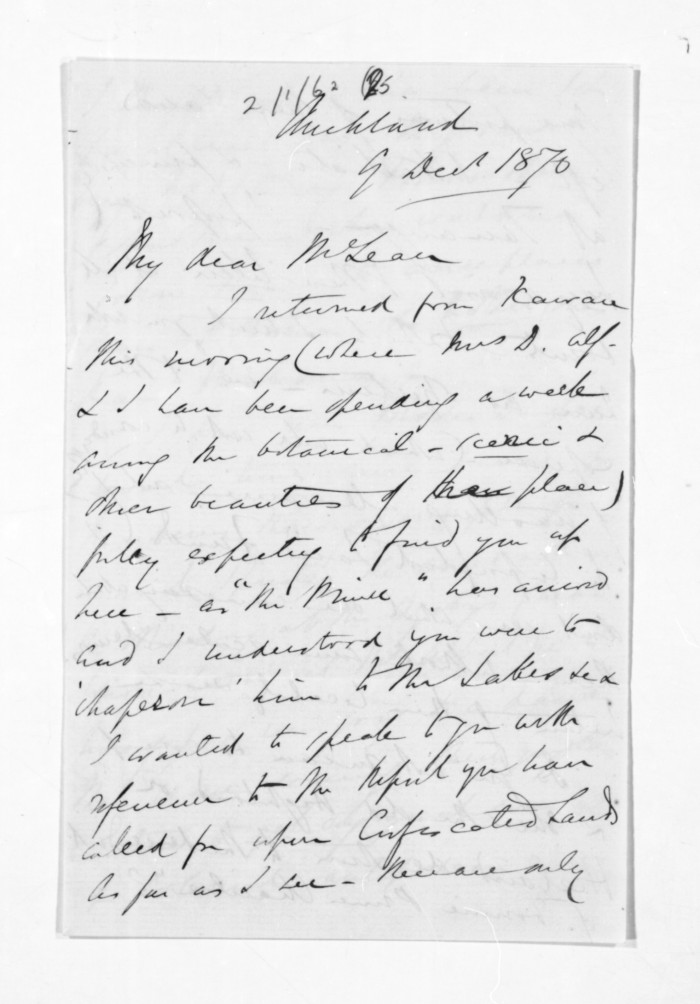 Auckland
9 Decr 1870
My dear McLean
I returned from Kawau
this morning (where Mrs D. Alf-
& I have been spending a week
among the botanical - scenic &
other beauties of that place)
fully expecting to find you up
here - as "the Prince" has arrived
and I understood you were to
'chaperon' him to the Lakes &c &
I wanted to speak to you with
reference to the Report you have
called for upon Confiscated Lands
As far as I see - there are only